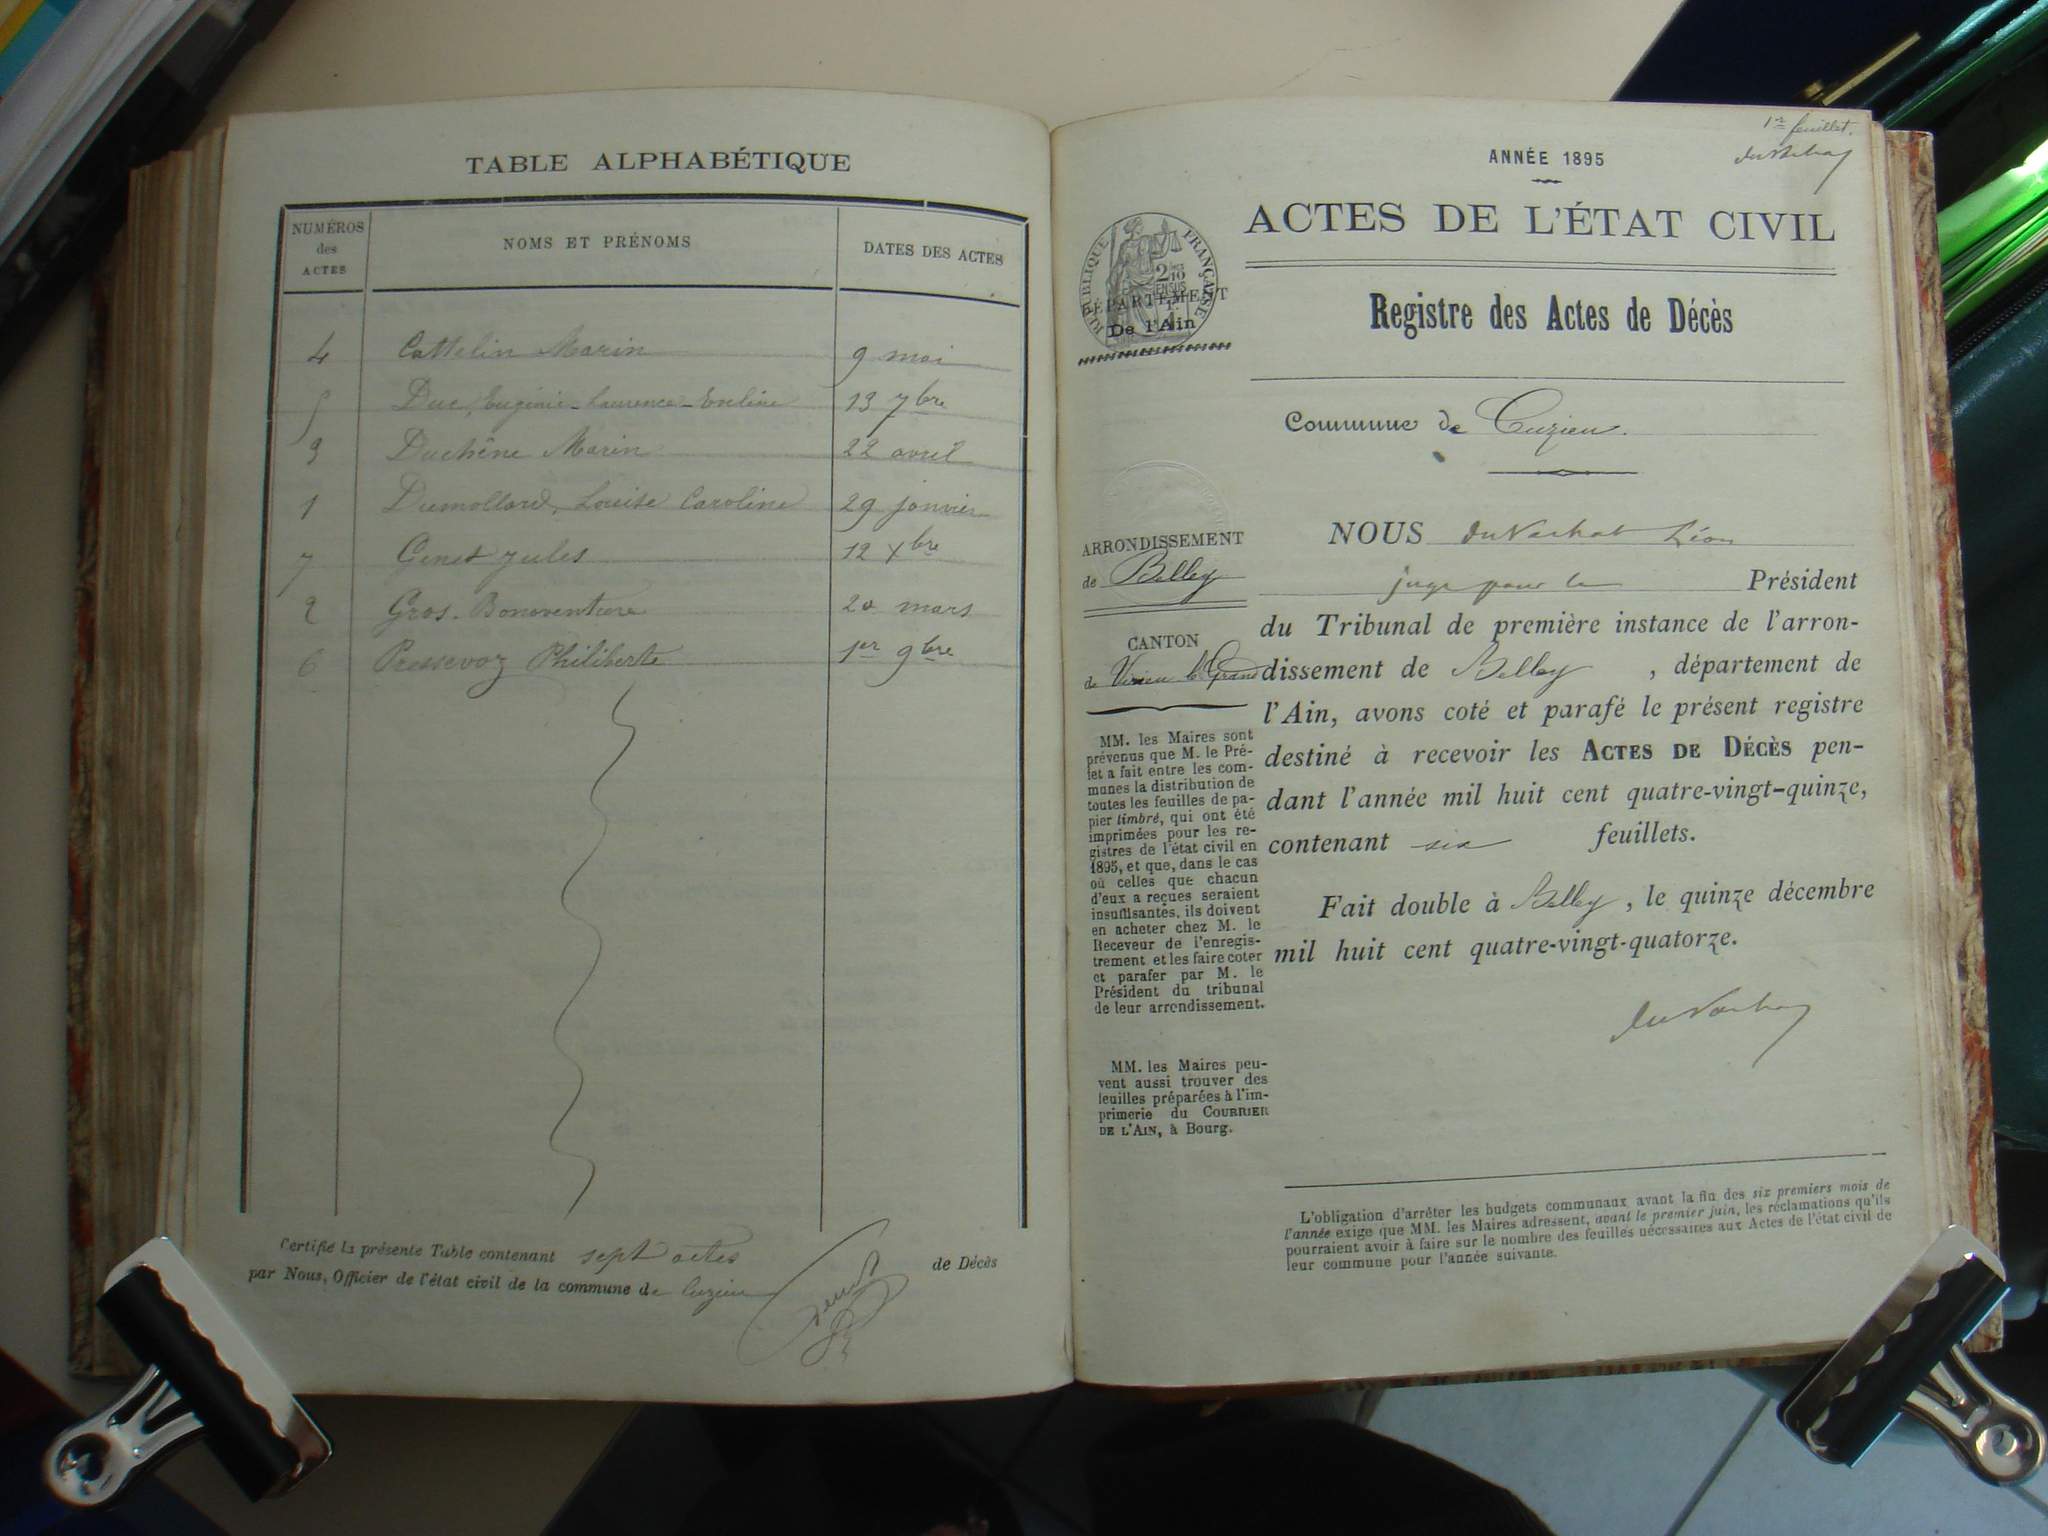 TABLE ALPHABÉTIQUE
NUMÉROS des ACTES
NOMS ET PRÉNOMS
DATES DES ACTES
4 Cattelin Marin 9 mai
5 Duc, Eugénie-Laurence-Eveline 13 7bre
3 Duchêne Marin 22 avril
1 Dumollard, Louise Caroline 29 janvier
7 Genet Jules 12 Xbre
2 Gros. Bonaventure 20 mars
6 Pressevoz Philiberte 1er 9bre
Certifié la présente Table contenant sept actes de Décès
par Nous, Officier de l'état civil de la commune de Cuzieu
1er feuillet.
ANNÉE 1895
ACTES DE L'ÉTAT CIVIL
RÉPUBLIQUE FRANÇAISE
DÉPARTEMENT
De l'Ain
Registre des Actes de Décès
Commune de Cuzieu.
ARRONDISSEMENT
de Belley
CANTON
de Virieu le Grand
MM. les Maires sont
prévenus que M. le Pré-
fet a fait entre les com-
munes la distribution de
toutes les feuilles de pa-
pier timbré, qui ont été
imprimées pour les re-
gistres de l'état civil en
1895, et que, dans le cas
où celles que chacun
d'eux a reçues seraient
insuffisantes, ils doivent
en acheter chez M. le
Receveur de l'enregis-
trement et les faire coter
et parafer par M. le
Président du tribunal
de leur arrondissement.
MM. les Maires peu-
vent aussi trouver des
feuilles préparées à l'im-
primerie du COURRIER
DE L'AIN, à Bourg.
NOUS du Vachat Léon
juge pour le Président
du Tribunal de première instance de l'arron-
dissement de Belley, département de
l'Ain, avons coté et parafé le présent registre
destiné à recevoir les ACTES DE DÉCÈS pen-
dant l'année mil huit cent quatre-vingt-quinze,
contenant six feuillets.
Fait double à Belley, le quinze décembre
mil huit cent quatre-vingt-quatorze.
du Vachat
L'obligation d'arrêter les budgets communaux avant la fin des six premiers mois de
l'année exige que MM. les Maires adressent, avant le premier juin, les réclamations qu'ils
pourraient avoir à faire sur le nombre des feuilles nécessaires aux Actes de l'état civil de
leur commune pour l'année suivante.